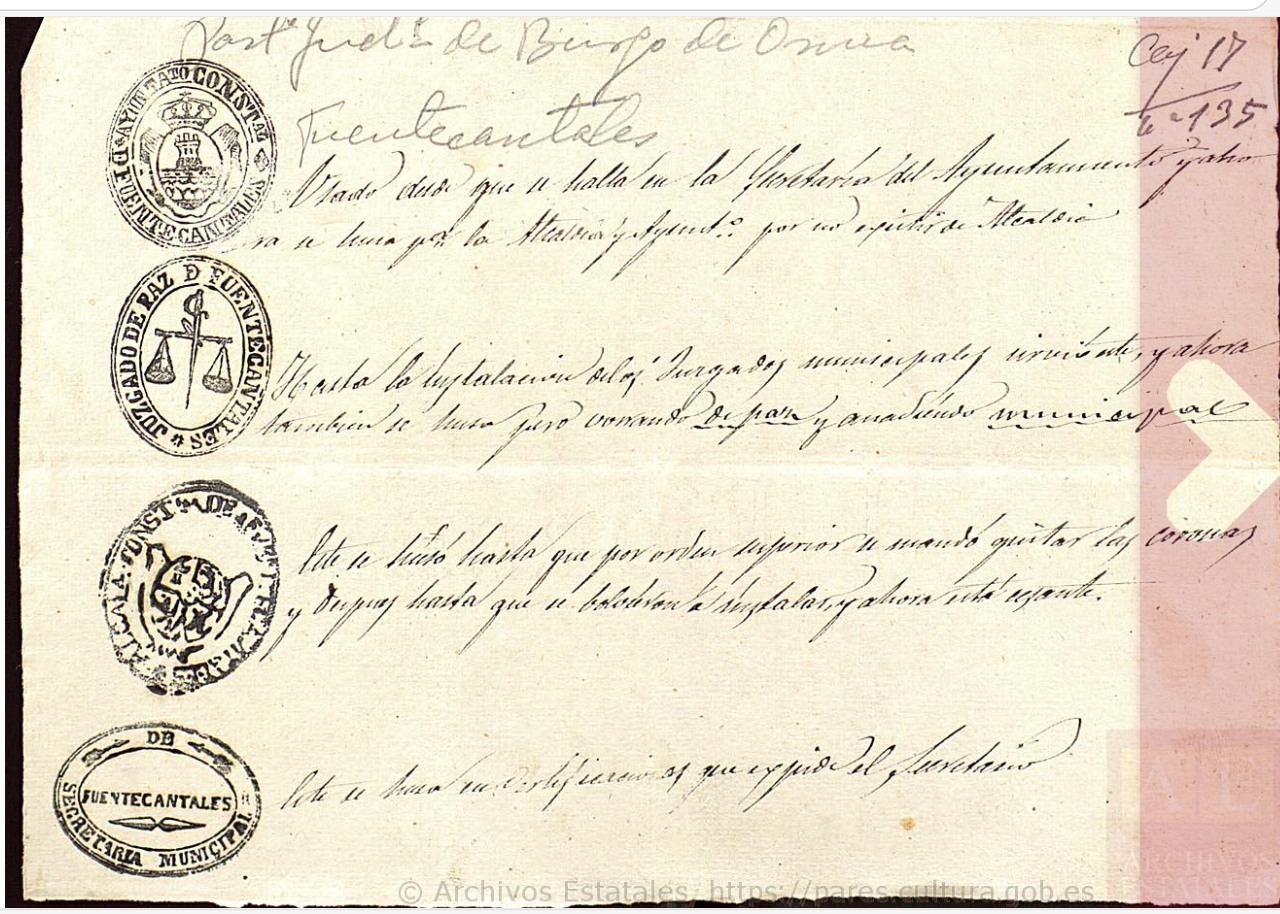 Part.º Jud.l de Burgo de Osma
Caj 17
nº 135
Fuentecantales
AYUNTATO CONSTAL D FUENTECANTALES
Usado desde que se halla en la Secretaría del Ayuntamiento y aho
ra se husa por la Alcaldia y Ayunt.º por no existir de Alcaldia
JUZGADO DE PAZ D FUENTECANTALES
Hasta la instalacion de los Juzgados municipales unicamente, y ahora
tambien se husa pero borrando de paz y anadiendo municipal
ALCALA CONST DE
Este se husó hasta que por orden superior se mandó quitar las coronas
y despues hasta que se bolbieron á instalar, y ahora está cesante.
DE
FUENTECANTALES
SECRETARIA MUNICIPAL
Este se husa en certificaciones que expide el Secretario
© Archivos Estatales, https://pares.cultura.gob.es
ARCHIVOS
ESTATALES